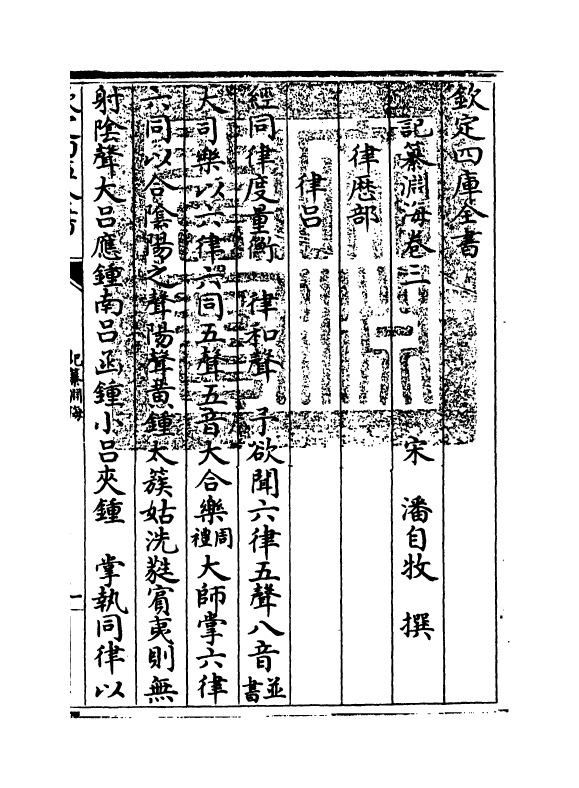 欽定四庫全書
記纂淵海卷三　宋　潘自牧　撰
律厯部
律呂
經同律度量衡　律和聲　予欲聞六律五聲八音並書
大司樂以六律六同五聲五音大合樂周禮大師掌六律
六同以合陰陽之聲陽聲黃鍾太蔟姑洗蕤賓夷則無
射陰聲大呂應鍾南呂函鍾小呂夾鍾　掌執同律以
記纂淵海
一